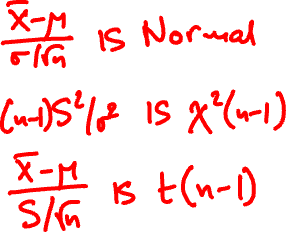 x̄-μ / σ/√n is Normal
(n-1)S²/σ² is χ²(n-1)
x̄-μ / S/√n is t(n-1)